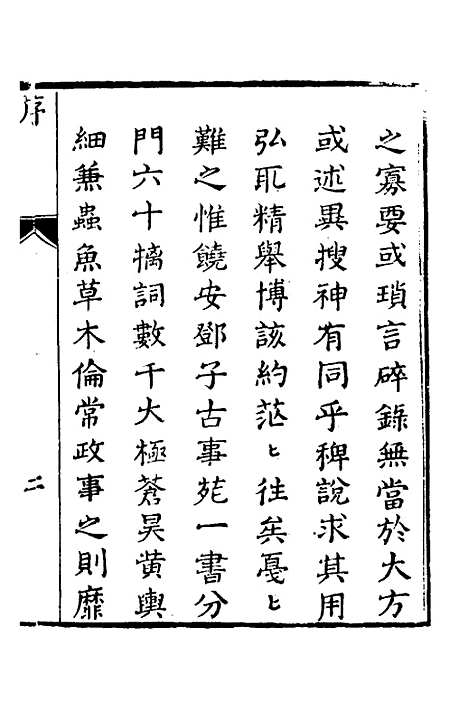 之寡要或瑣言碎錄無當於大方
或述異搜神有同乎稗說求其用
弘取精舉博該約茫〻往矣戞〻
難之惟饒安鄧子古事苑一書分
門六十摛詞數千大極蒼昊黄輿
細兼蟲魚草木倫常政事之則靡
序
二